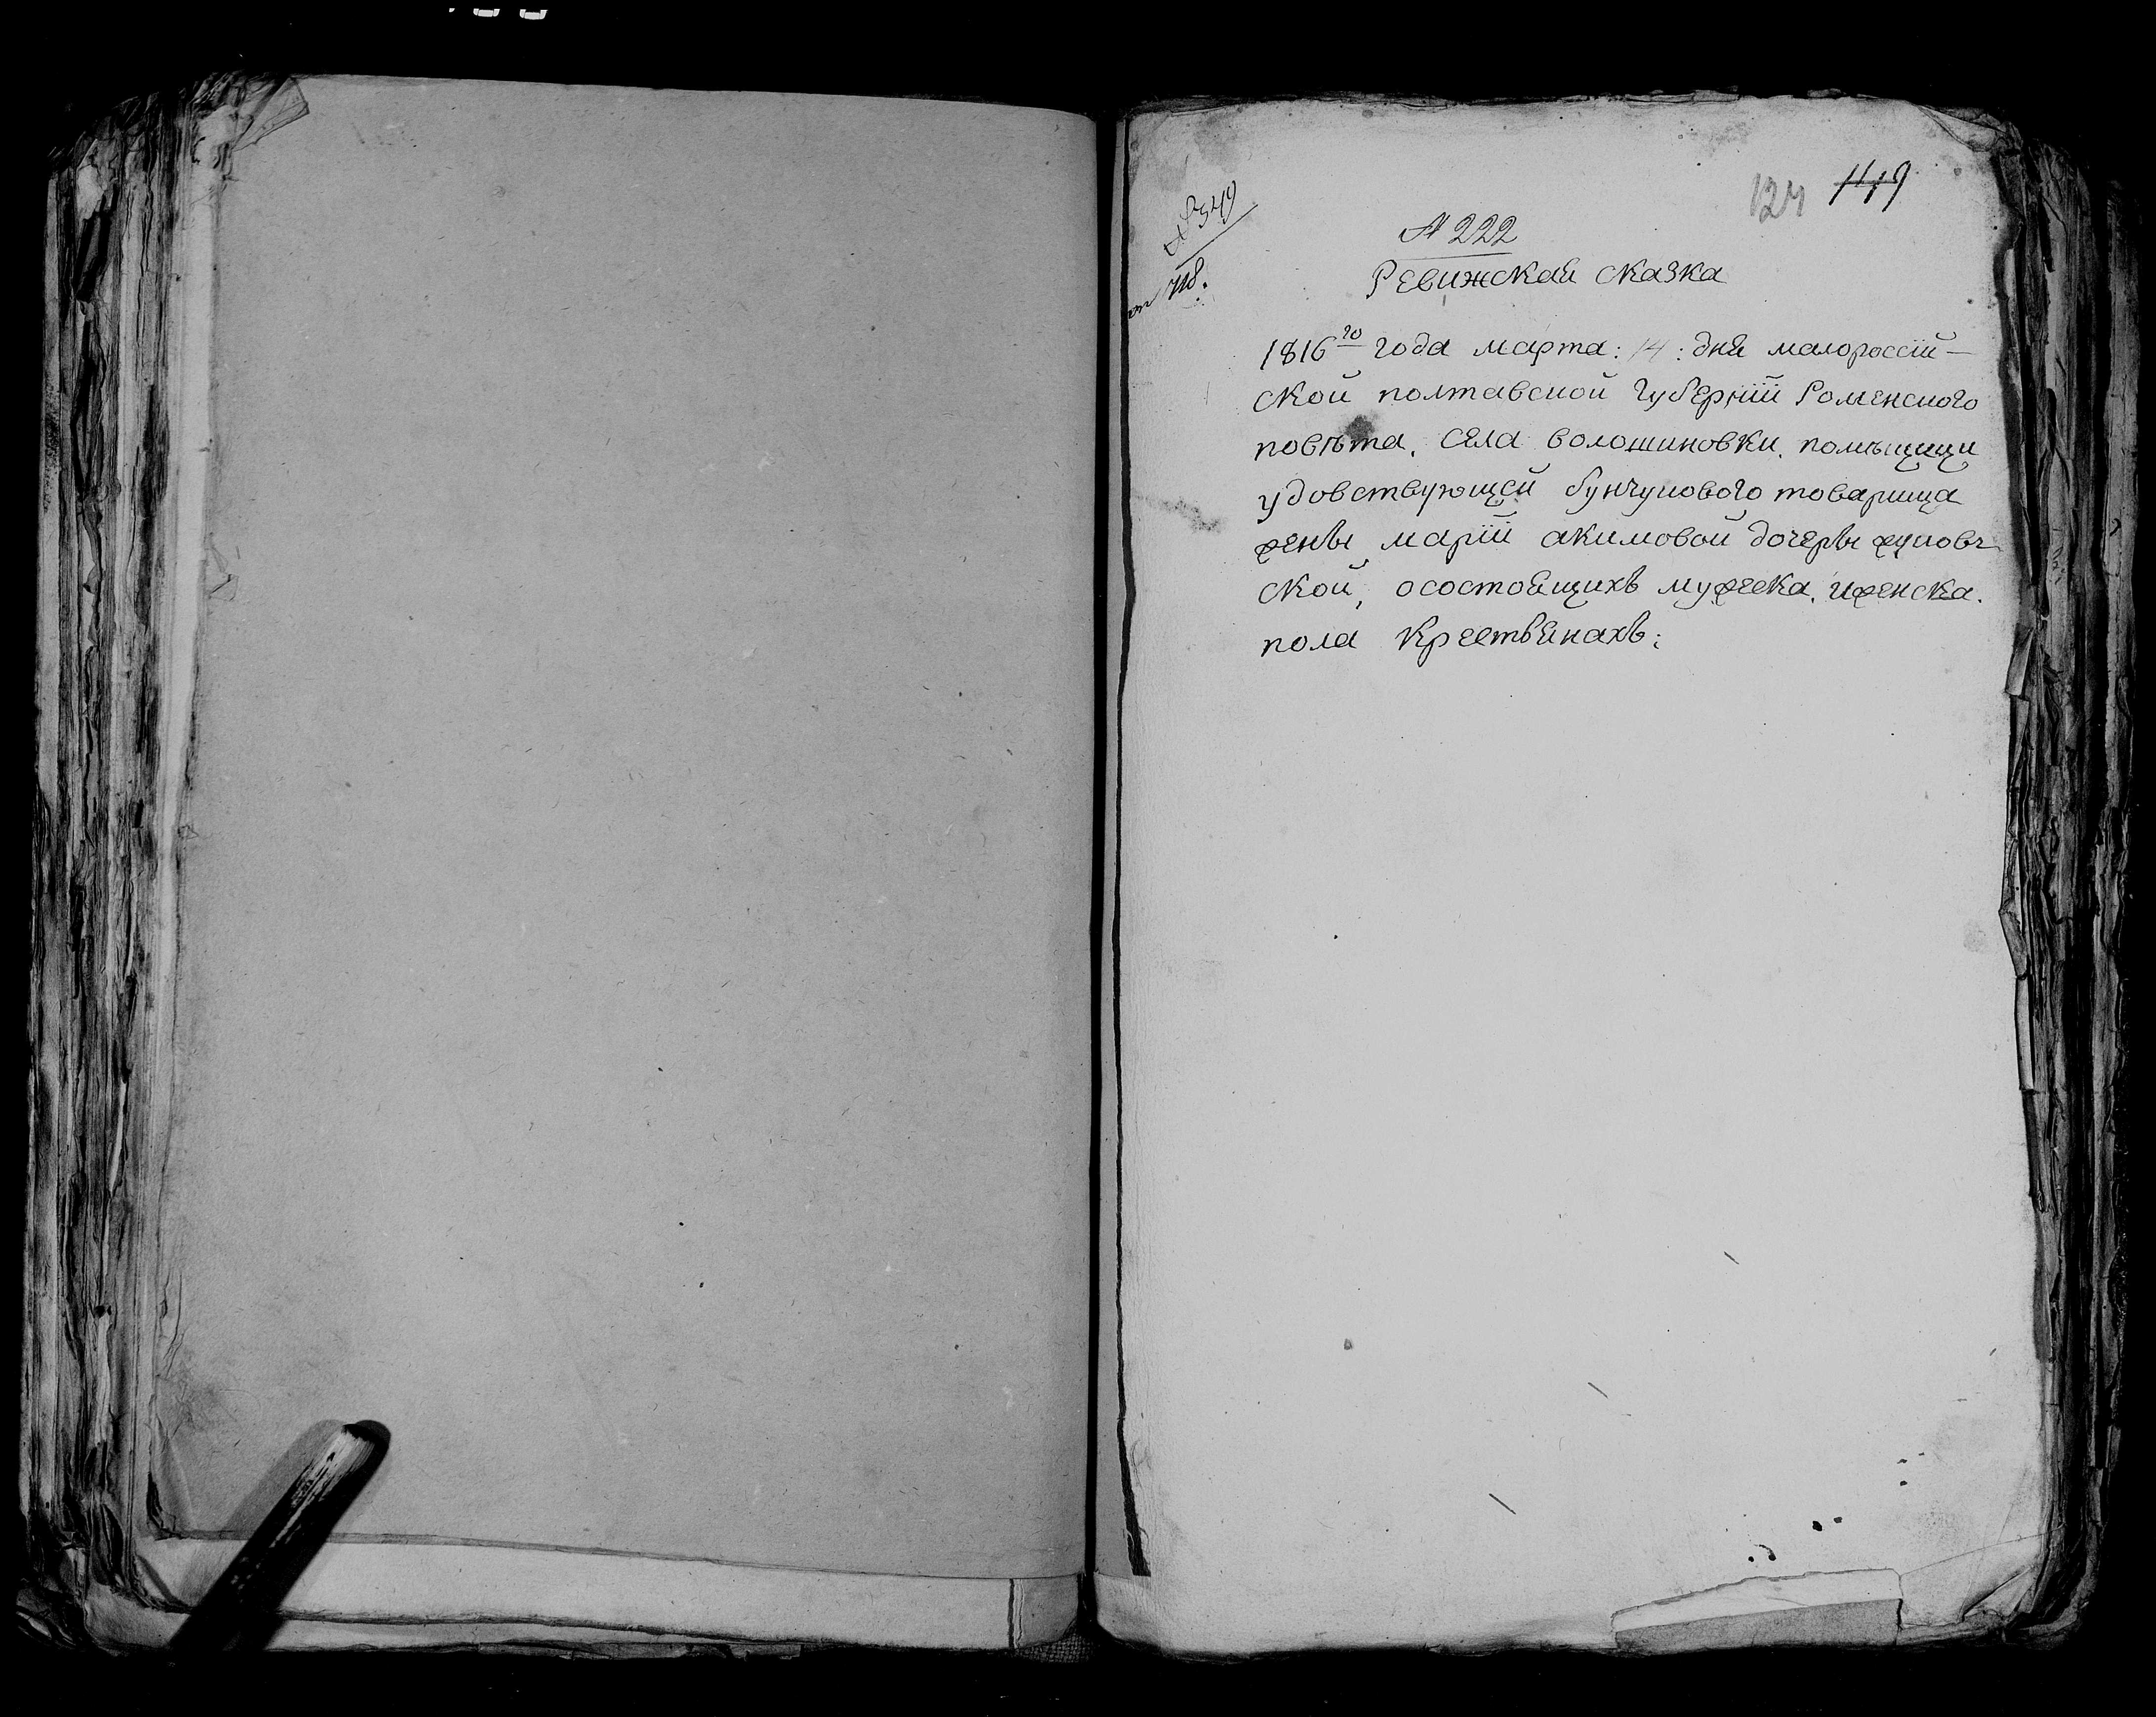 124 1119
№ 222
Ревижская сказка
1816го года марта: 14: дня малороссїй—
ской полтавской губернїй Роменского
повѣта, села волошиновки, помѣщици
удовствующей бунчукового товарища
женъ марїй акимовой дочеръ жуков
ской, осостоящихъ мужеска, иженска.
пола Крестьянахъ: